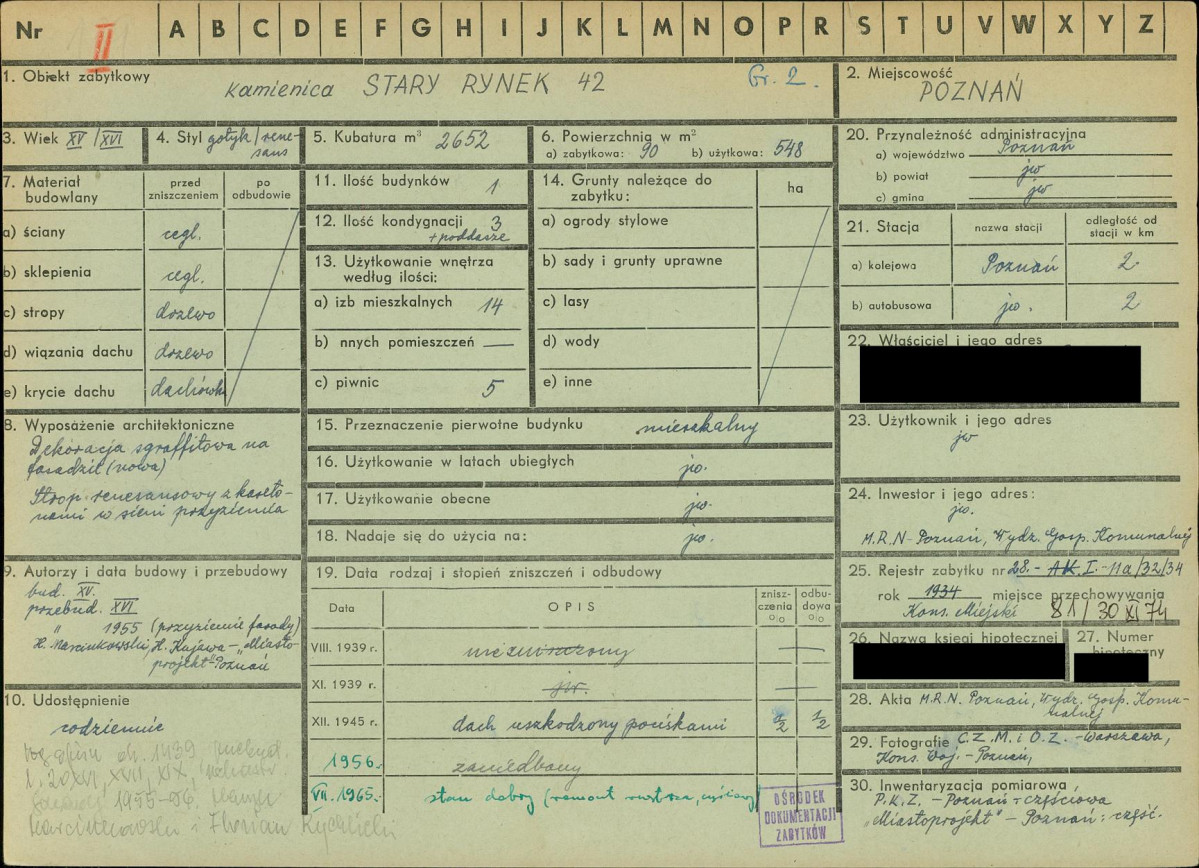 Nr II A B C D E F G H I J K L M N O P R S T U V W X Y Z
1. Obiekt zabytkowy
Kamienica STARY RYNEK 42 Gr. 2.
2. Miejscowość
POZNAŃ
3. Wiek XV/XVI
4. Styl gotyk/rene-
sans
5. Kubatura m³ 2652
6. Powierzchnia w m²
a) zabytkowa: 90 b) użytkowa: 548
7. Materiał budowlany
przed zniszczeniem
po odbudowie
a) ściany cegl.
b) sklepienia cegl.
c) stropy drzewo
d) wiązania dachu drzewo
e) krycie dachu dachówk
8. Wyposażenie architektoniczne
Dekoracja sgraffitowa na
fasadzie (nowa)
Strop renesansowy z kaseto-
nami w sieni przyziemia
9. Autorzy i data budowy i przebudowy
bud. XV.
przebud. XVI
" 1955 (przyziemie fasady)
H. Marcinkowski, H. Kajawa - "Miasto-
projekt" Poznań
10. Udostępnienie
codziennie
ok. 1439
XVI, XVII, XIX,
1955-56
i Florian Rychlicki
11. Ilość budynków 1
12. Ilość kondygnacji 3
+poddasze
13. Użytkowanie wnętrza
według ilości:
a) izb mieszkalnych 14
b) nnych pomieszczeń —
c) piwnic 5
14. Grunty należące do
zabytku:
ha
a) ogrody stylowe
b) sady i grunty uprawne
c) lasy
d) wody
e) inne
15. Przeznaczenie pierwotne budynku mieszkalny
16. Użytkowanie w latach ubiegłych jw.
17. Użytkowanie obecne jw.
18. Nadaje się do użycia na: jw.
19. Data rodzaj i stopień zniszczeń i odbudowy
Data
OPIS
znisz-
czenia
%
odbu-
dowa
%
VIII. 1939 r. niezniszczony —
XI. 1939 r. jw. —
XII. 1945 r. dach uszkodzony pociskami 2 ½
1956. zaniedbany
VII. 1965. stan dobry (remont wnętrza, częściowy)
OŚRODEK
DOKUMENTACJI
ZABYTKÓW
20. Przynależność administracyjna
a) województwo Poznań
b) powiat jw
c) gmina jw
21. Stacja
nazwa stacji
odległość od
stacji w km
a) kolejowa Poznań 2
b) autobusowa jw. 2
22. Właściciel i jego adres
23. Użytkownik i jego adres
jw
24. Inwestor i jego adres:
jw.
M.R.N - Poznań, Wydz. Gosp. Komunalnej
25. Rejestr zabytku nr 28.- AK.I.-11a/32/34
rok 1934 miejsce przechowywania
Kons. Miejski 81/30 XI 74
26. Nazwa księgi hipotecznej
27. Numer
hipoteczny
28. Akta M.R.N. Poznań, Wydz. Gosp. Komu-
nalnej
29. Fotografie C.Z.M. i O.Z. - Warszawa,
Kons. Woj. - Poznań,
30. Inwentaryzacja pomiarowa
P.K.Z. - Poznań - częściowa
"Miastoprojekt" - Poznań: część.